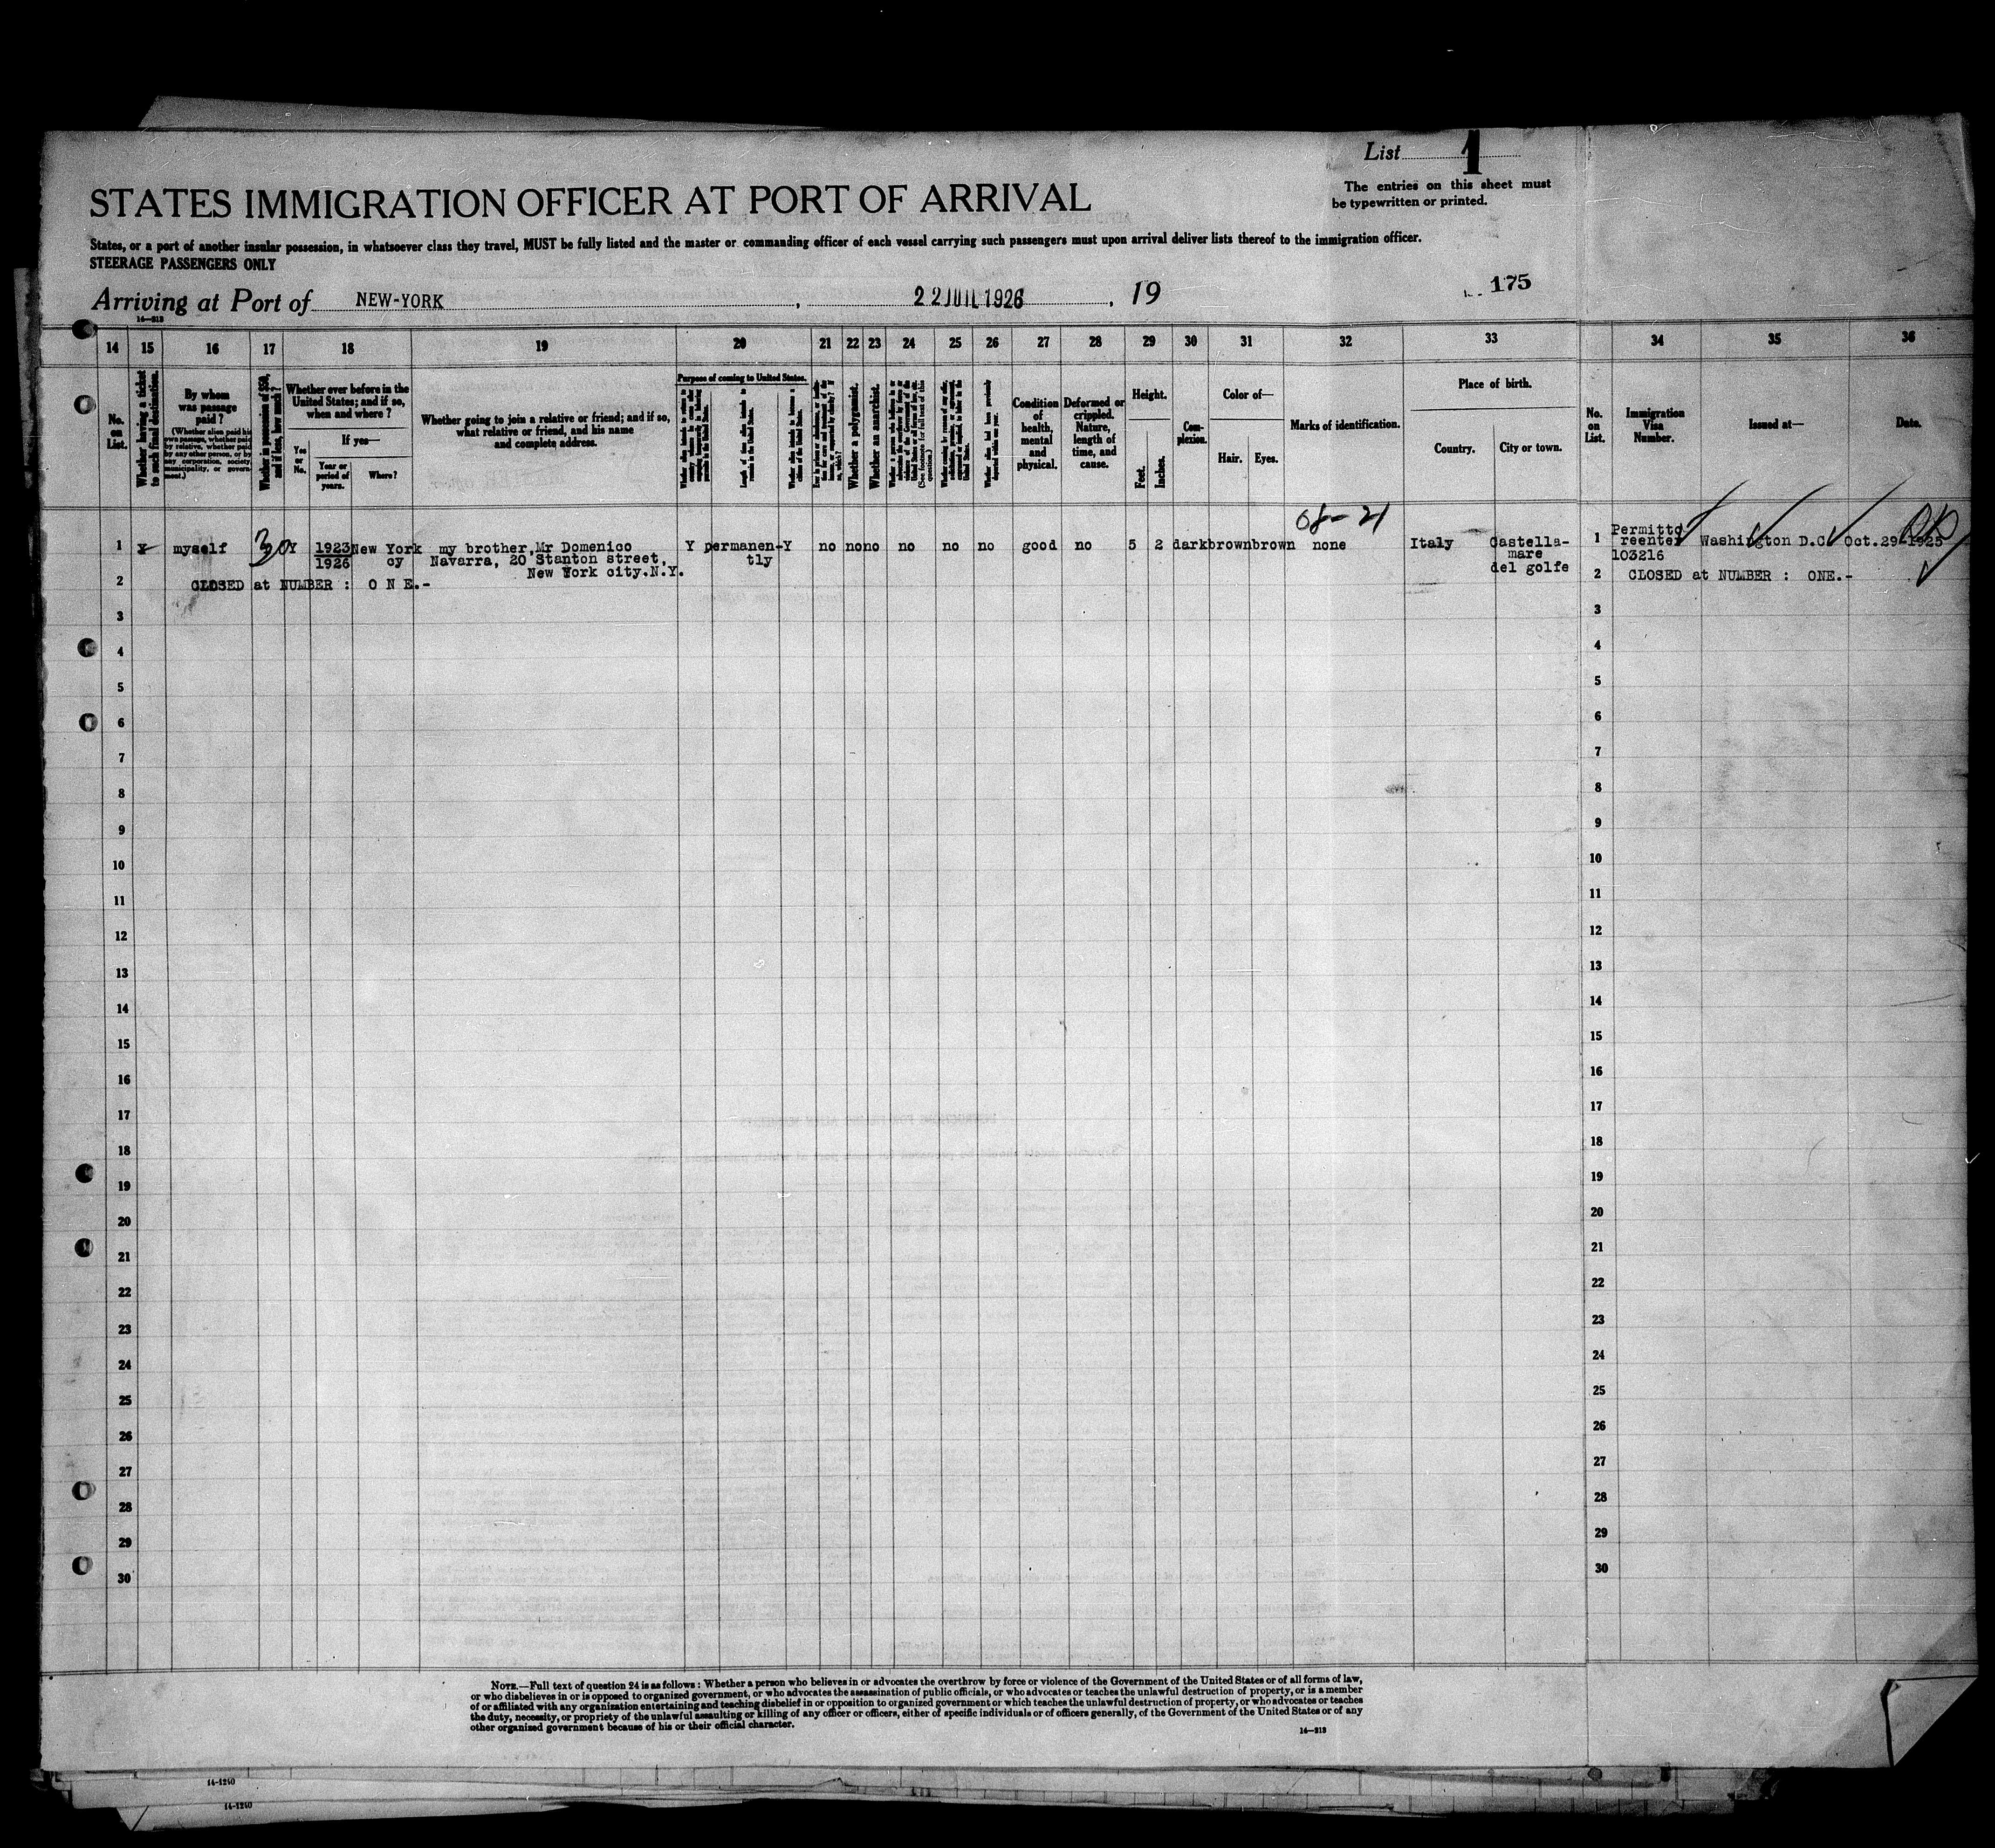 List 1
The entries on this sheet must
be typewritten or printed.
STATES IMMIGRATION OFFICER AT PORT OF ARRIVAL
States, or a port of another insular possession, in whatsoever class they travel, MUST be fully listed and the master or commanding officer of each vessel carrying such passengers must upon arrival deliver lists thereof to the immigration officer.
STEERAGE PASSENGERS ONLY
175
Arriving at Port of NEW-YORK, 22 JUIL 1926, 19
14—313
14 15 16 17 18 19 20 21 22 23 24 25 26 27 28 29 30 31 32 33 34 35 36
No. on List.
Whether having a ticket to such final destination.
By whom was passage paid?
(Whether alien paid his own passage, whether paid by relative, whether paid by any other person, or by any corporation, society, municipality, or government.)
Whether in possession of $50, and if less, how much?
Whether ever before in the United States; and if so, when and where?
Yes or No.
If yes—
Year or period of years.
Where?
Whether going to join a relative or friend; and if so, what relative or friend, and his name and complete address.
Purpose of coming to United States.
Length of time alien intends to remain in the United States.
Whether alien intends to become a citizen of the United States.
Whether a polygamist.
Whether an anarchist.
(See footnote for full text of this question.)
Whether alien had been previously deported within one year.
Condition of health, mental and physical.
Deformed or crippled. Nature, length of time, and cause.
Height.
Feet.
Inches.
Complexion.
Color of—
Hair.
Eyes.
Marks of identification.
Place of birth.
Country.
City or town.
No. on List.
Immigration Visa Number.
Issued at—
Date.
08-21
1 X myself 30 Y 1923 1926 New York cy my brother,Mr Domenico Navarra, 20 Stanton street, New York city.N.Y. Y permanen-tly Y no no no no no no good no 5 2 dark brown brown none Italy Castella-mare del golfe 1 Permitto reenter 103216 Washington D.C. Oct.29-1925
2 CLOSED at NUMBER : O N E.- 2 CLOSED at NUMBER : ONE.-
3 3
4 4
5 5
6 6
7 7
8 8
9 9
10 10
11 11
12 12
13 13
14 14
15 15
16 16
17 17
18 18
19 19
20 20
21 21
22 22
23 23
24 24
25 25
26 26
27 27
28 28
29 29
30 30
NOTE.—Full text of question 24 is as follows: Whether a person who believes in or advocates the overthrow by force or violence of the Government of the United States or of all forms of law,
or who disbelieves in or is opposed to organized government, or who advocates the assassination of public officials, or who advocates or teaches the unlawful destruction of property, or is a member
of or affiliated with any organization entertaining and teaching disbelief in or opposition to organized government or which teaches the unlawful destruction of property, or who advocates or teaches
the duty, necessity, or propriety of the unlawful assaulting or killing of any officer or officers, either of specific individuals or of officers generally, of the Government of the United States or of any
other organized government because of his or their official character.
14—313
14-1240
14-1240